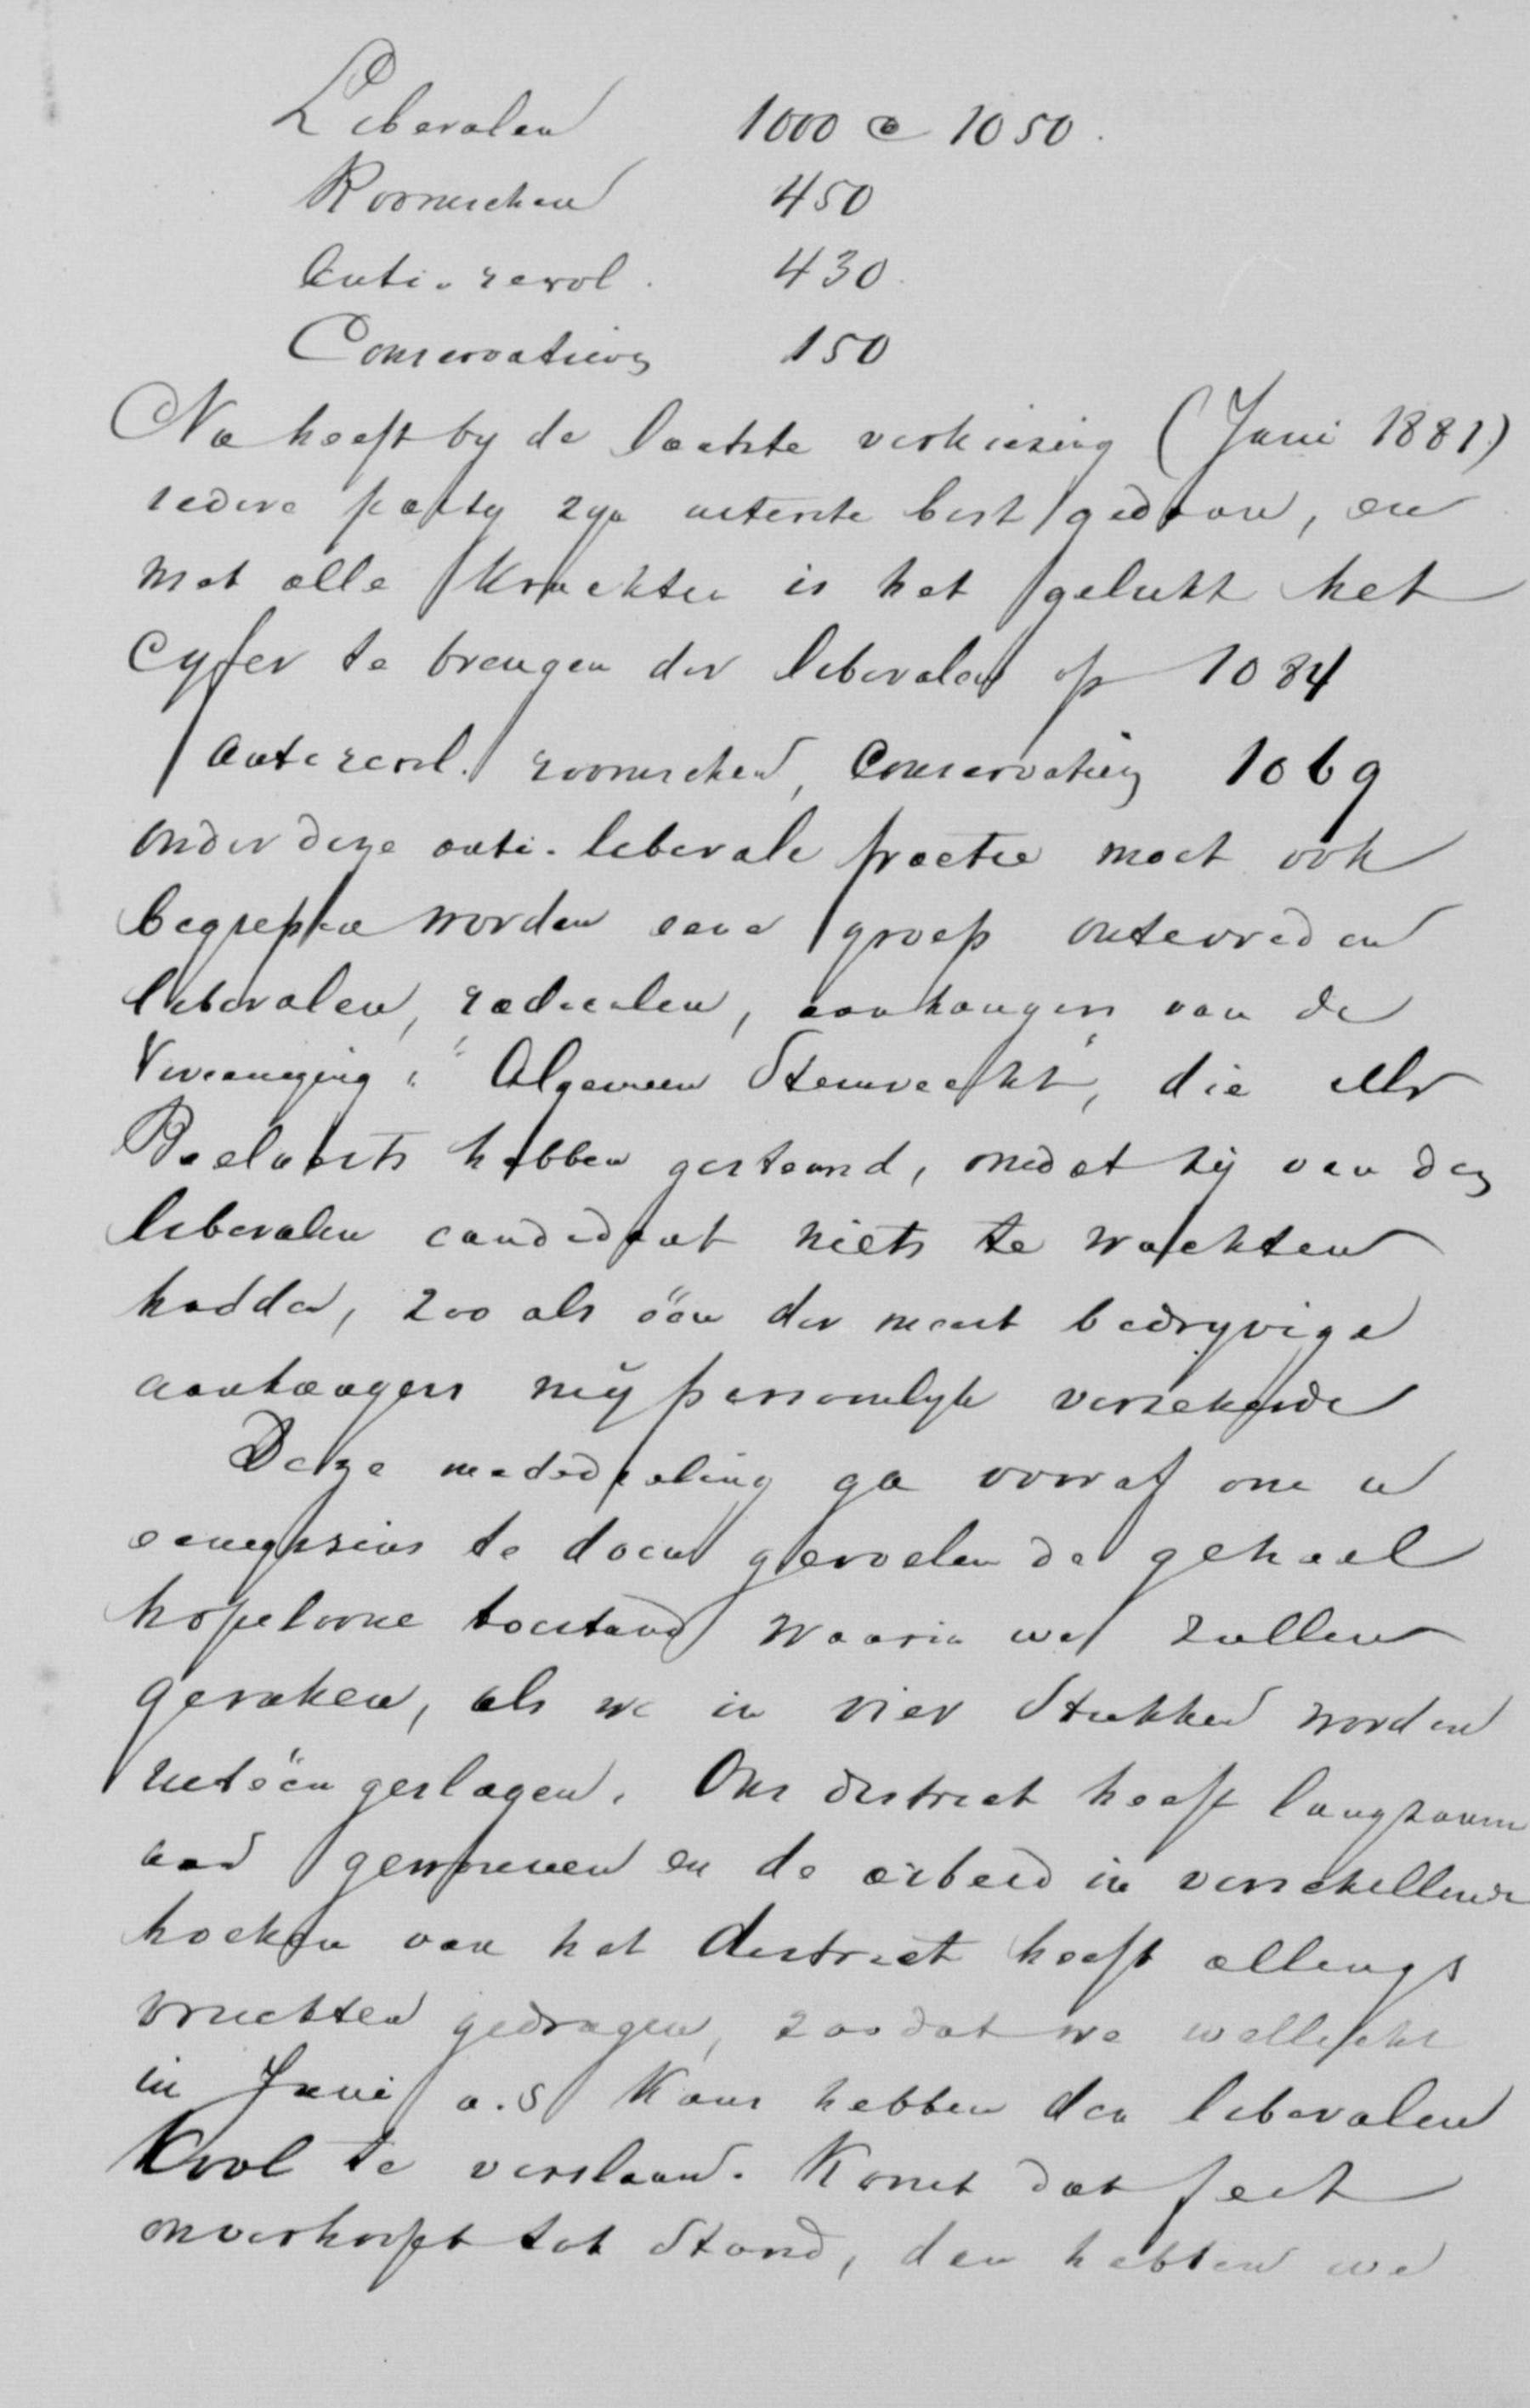 Liberalen 1000 à 1050.
Roomschen 450
Anti-revol. 430.
Conservatieven 150
Nu heeft by de laatste verkiezing (Juni 1881)
iedere party zyn uiterste best gedaan, en
met alle krachten is het gelukt het
Cyfer te brengen der liberalen op 1084
Antirevol. roomschen, Conservatieven 1069
onder deze anti-liberale fractie moet ook
begrepen worden eene groep ontevreden
liberalen, radicalen, aanhangers van de
Vereeniging: "Algemeen Stemrecht", die allen
Beelaerts hebben gesteund, omdat zij van den
liberalen candidaat niets te wachten
hadden, zoo als één der meest bedryvige
aanhangers mij persoonlyk verzekerde
Deze mededeeling ga vooraf om u
eenigszins te doen gevoelen de geheel
hopelooze toestand waarin we zullen
geraken, als we in vier stukken worden
uitéén geslagen. Ons district heeft langzaam
aan gewonnen en de arbeid in verschillende
hoeken van het district heeft allengs
vruchten gedragen, zoodat we wellicht
in Juni a.s kans hebben den liberalen
Kool te verslaan. Komt dat feit
onverhoopt tot stand, dan hebben we